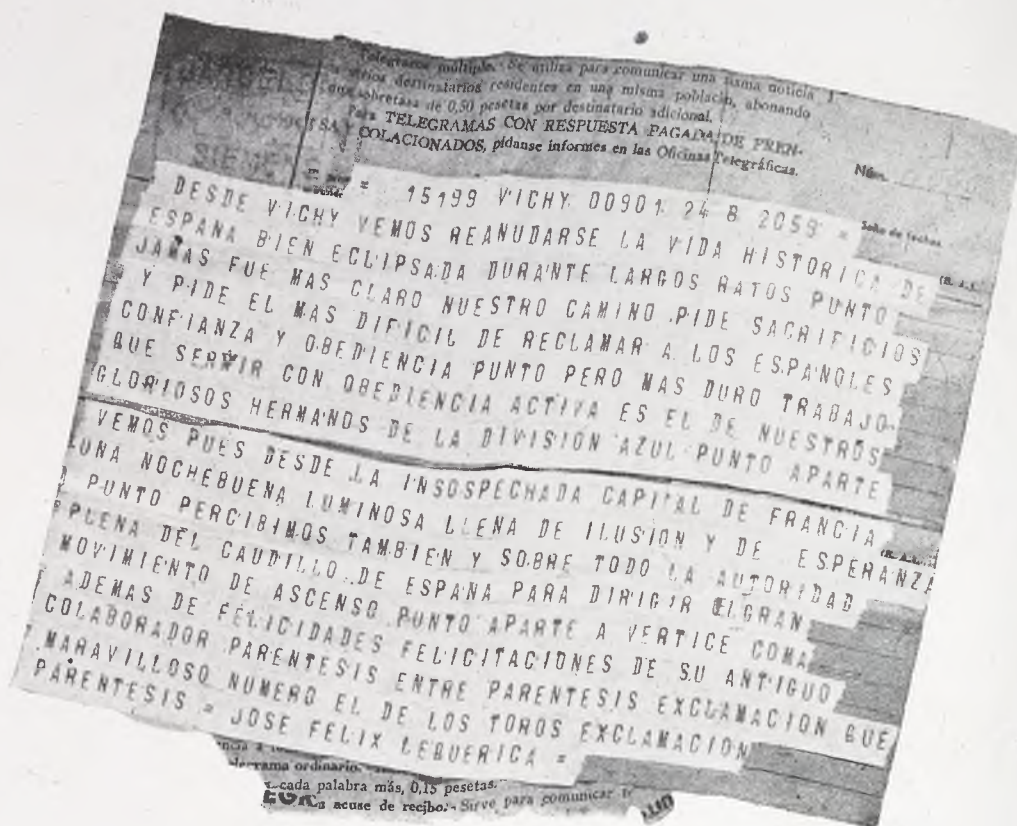 Telegrama múltiple.- Se utiliza para comunicar una misma noticia
varios destinatarios residentes en una misma población, abonando
una sobretasa de 0,50 pesetas por destinatario adicional.
Para TELEGRAMAS CON RESPUESTA PAGADA, DE PREN-
COLACIONADOS, pídanse informes en las Oficinas Telegráficas.
Núm.
Sello de fechas
= 15199 VICHY 00901 24 8 2059 =
DESDE VICHY VEMOS REANUDARSE LA VIDA HISTORICA DE
ESPAÑA BIEN ECLIPSADA DURANTE LARGOS RATOS PUNTO
JAMAS FUE MAS CLARO NUESTRO CAMINO PIDE SACRIFICIOS
Y PIDE EL MAS DIFICIL DE RECLAMAR A LOS ESPAÑOLES
CONFIANZA Y OBEDIENCIA PUNTO PERO MAS DURO TRABAJO
QUE SERVIR CON OBEDIENCIA ACTIVA ES EL DE NUESTROS
GLORIOSOS HERMANOS DE LA DIVISION AZUL PUNTO APARTE
VEMOS PUES DESDE LA INSOSPECHADA CAPITAL DE FRANCIA
UNA NOCHEBUENA LUMINOSA LLENA DE ILUSION Y DE ESPERANZA
PUNTO PERCIBIMOS TAMBIEN Y SOBRE TODO LA AUTORIDAD
PLENA DEL CAUDILLO DE ESPAÑA PARA DIRIGIR EL GRAN
MOVIMIENTO DE ASCENSO PUNTO APARTE A VERTICE COMA
ADEMAS DE FELICIDADES FELICITACIONES DE SU ANTIGUO
COLABORADOR PARENTESIS ENTRE PARENTESIS EXCLAMACION QUE
MARAVILLOSO NUMERO EL DE LOS TOROS EXCLAMACION
PARENTESIS = JOSE FELIX LEQUERICA =
ordinario.
cada palabra más, 0,15 pesetas.
acuse de recibo.- Sirve para comunicar